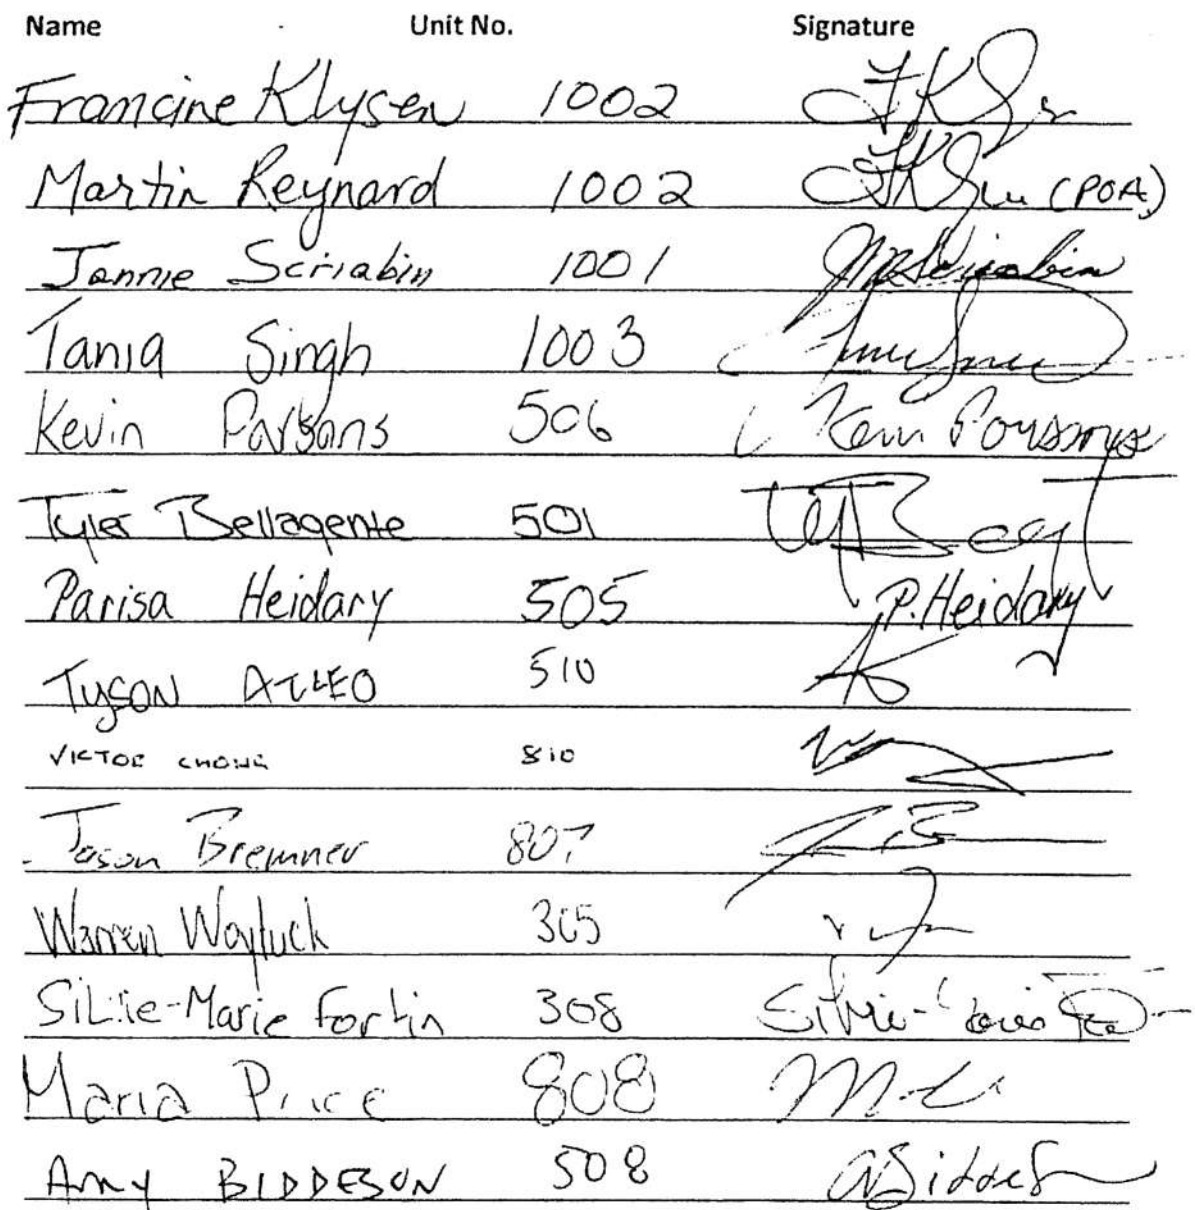 Name Unit No. Signature
Francine Klysen 1002
Martin Reynard 1002 (POA)
Jannie Scriabin 1001 Scriabin
Tania Singh 1003
Kevin Parsons 506 Kevin Parsons
Tyler Bellagente 501
Parisa Heidary 505 P. Heidary
TYSON ATLEO 510
VICTOR CHONG 810
Jason Bremner 807
Warren Woyluck 305
Silvie-Marie Fortin 308 Silvie-
Maria Price 808
Amy BIDDESON 508